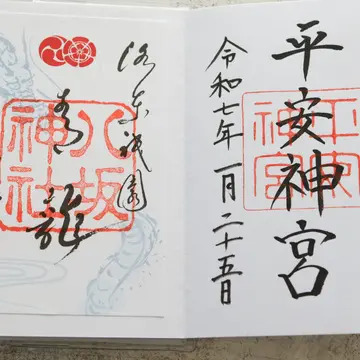 平安神宮
平安神宮
令和七年一月二十五日
洛東祇園
青龍
八坂神社